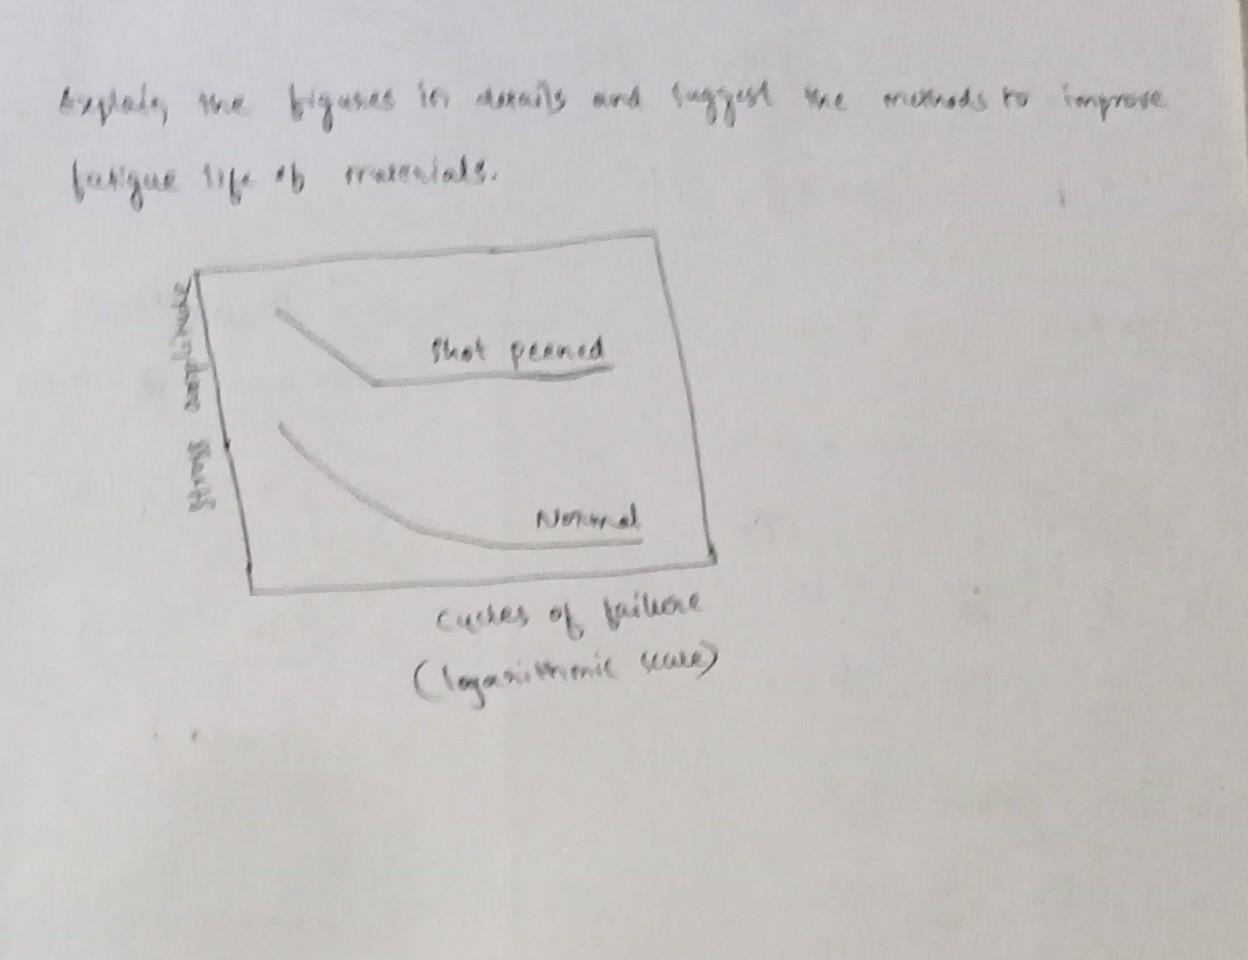 Explain the figures in details and suggest the methods to improve
fatigue life of materials.
Shot peened
Normal
Stress
cycles of failure
(logarithmic scale)